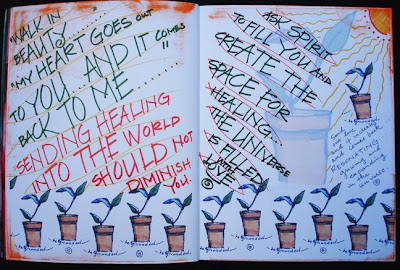 "WALK IN
BEAUTY.......
"MY HEART GOES OUT
TO YOU... AND IT COMES
BACK TO ME ....."
SENDING HEALING
INTO THE WORLD
SHOULD NOT
DIMINISH
YOU.
be grounded
be grounded
be grounded
be grounded
ASK SPIRIT
TO FILL YOU AND
CREATE THE
SPACE FOR
HEALING...
THE UNIVERSE
IS FILLED
WITH
Send love
out it increases
and comes back
RESONATING
growing and
expanding
universe.
be grounded
be grounded
be grounded
be grounded